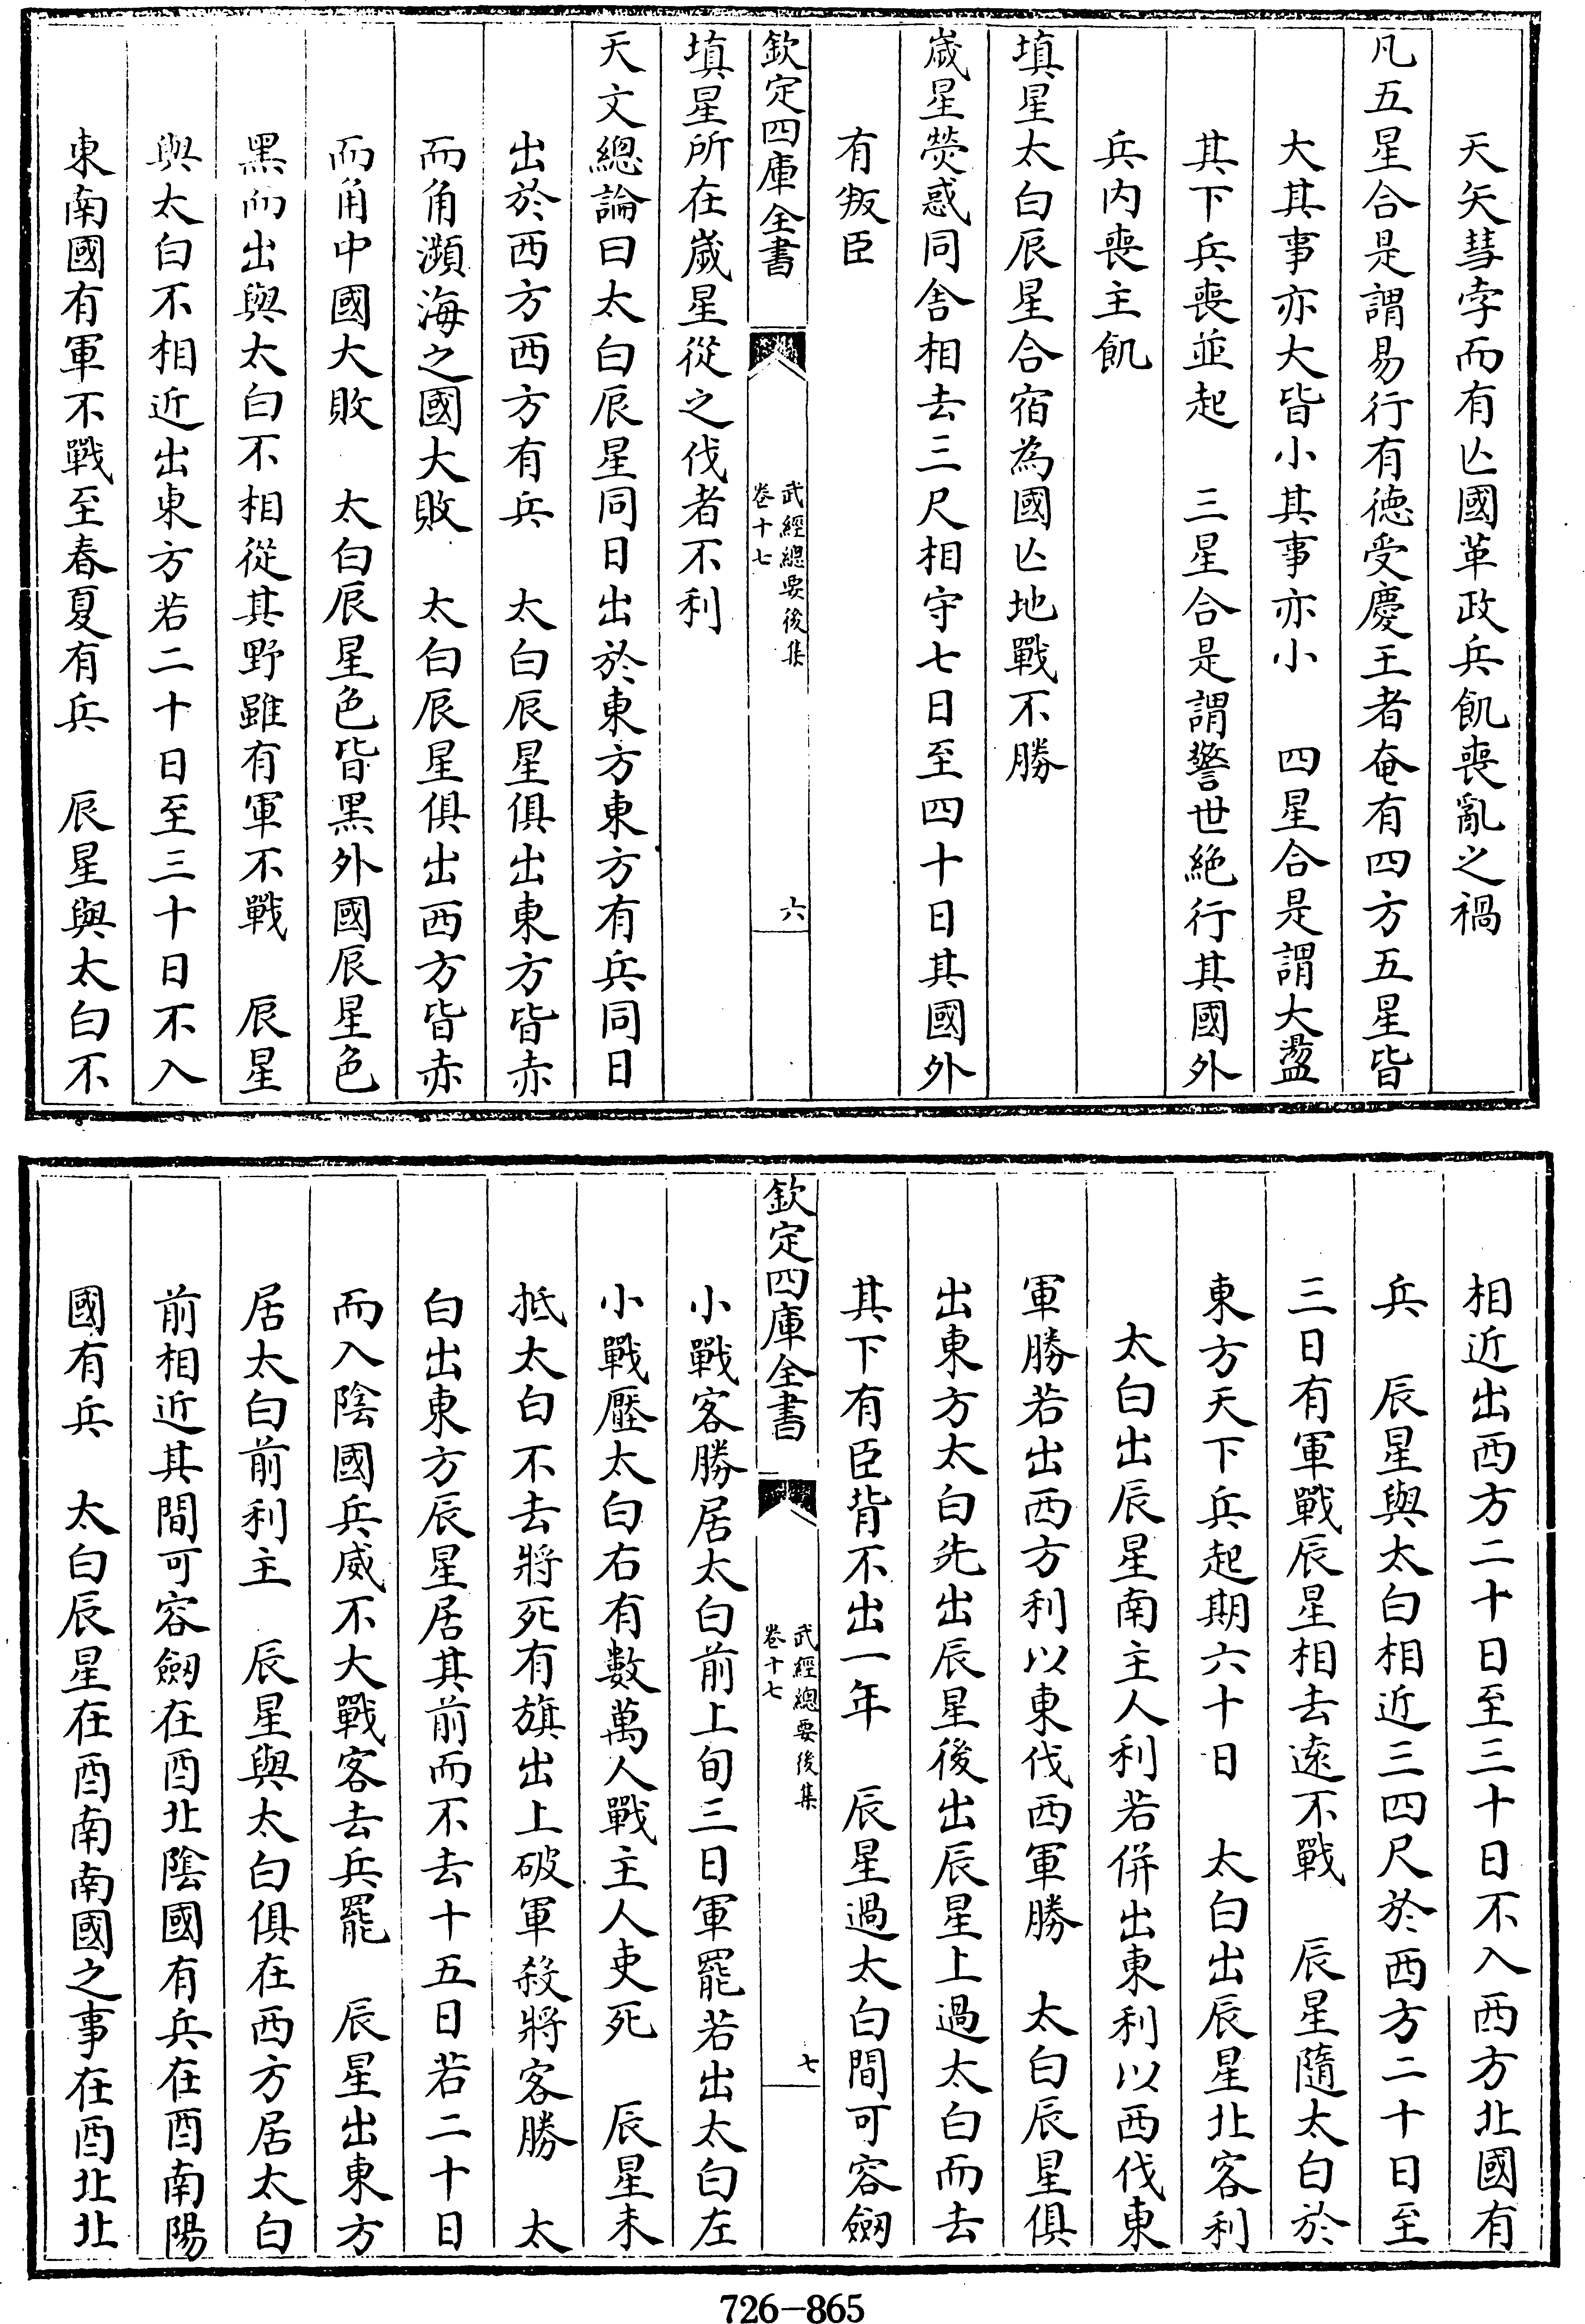 天矢彗孛而有亾國革政兵飢喪亂之禍
凡五星合是謂易行有徳受慶王者奄有四方五星皆
大其事亦大皆小其事亦小　四星合是謂大盪
其下兵喪並起　三星合是謂警世絶行其國外
兵内喪主飢
填星太白辰星合宿為國亾地戰不勝
嵗星熒惑同舎相去三尺相守七日至四十日其國外
有叛臣
欽定四庫全書
武經總要後集
卷十七
六
填星所在嵗星從之伐者不利
天文總論曰太白辰星同日出於東方東方有兵同日
出於西方西方有兵　太白辰星俱出東方皆赤
而角瀕海之國大敗　太白辰星俱出西方皆赤
而角中國大敗　太白辰星色皆黑外國辰星色
黑而出與太白不相從其野雖有軍不戰　辰星
與太白不相近出東方若二十日至三十日不入
東南國有軍不戰至春夏有兵　辰星與太白不
相近出西方二十日至三十日不入西方北國有
兵　辰星與太白相近三四尺於西方二十日至
三日有軍戰辰星相去逺不戰　辰星隨太白於
東方天下兵起期六十日　太白出辰星北客利
太白出辰星南主人利若併出東利以西伐東
軍勝若出西方利以東伐西軍勝　太白辰星俱
出東方太白先出辰星後出辰星上過太白而去
其下有臣背不出一年　辰星過太白間可容劒
欽定四庫全書
武經總要後集
卷十七
七
小戰客勝居太白前上旬三日軍罷若出太白左
小戰壓太白右有數萬人戰主人吏死　辰星未
抵太白不去將死有旗出上破軍殺將客勝　太
白出東方辰星居其前而不去十五日若二十日
而入陰國兵威不大戰客去兵罷　辰星出東方
居太白前利主　辰星與太白俱在西方居太白
前相近其間可容劒在酉北陰國有兵在酉南陽
國有兵　太白辰星在酉南南國之事在酉北北
726—865